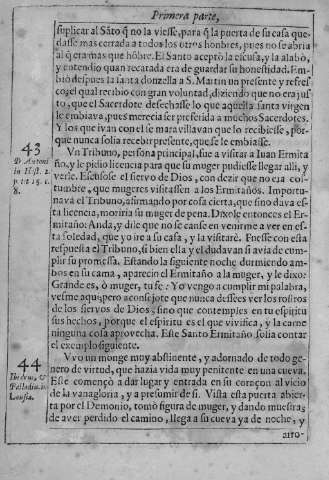 Primera parte,
suplicar al Sãto q̃ no la viesse, para q̃ la puerta de su casa que-
dasse mas cerrada a todos los otros hombres, pues no se abria
al q̃ era mas que hõbre. El Santo aceptò la escusa, y la alabò,
y entendio quan recatada era de guardar su honestidad. Em-
biò despues la santa donzella a S. Martin un presente y refres
co, el qual recibio con gran voluntad, diziendo que no era jus
to, que el Sacerdote desechasse lo que aquella santa virgen
le embiava, pues merecia ser preferida a muchos Sacerdotes.
Y los que ivan con el se maravillavan que lo recibiesse, por-
que nunca solia recebir presente, que se le embiasse.
43
D. Antoni
in Hist. 2.
p. tt. 15. c.
8.
Vn Tribuno, persona principal, fue a visitar a Iuan Ermita
ño, y le pidio licencia para que su muger pudiesse llegar alli, y
verse. Escusose el siervo de Dios, con dezir que no era cos-
tumbre, que mugeres visitassen a los Ermitaños. Importu-
navà el Tribuno, afirmando por cosa cierta, que sino dava es-
ta licencia, moriria su muger de pena. Dixole entonces el Er-
mitaño: Anda, y dile que no se canse en venirme a ver en es-
ta soledad, que yo ire a su casa, y la visitarè. Fuesse con esta
respuesta el Tribuno, si bien ella y el dudavan si avia de cum-
plir su promessa. Estando la siguiente noche durmiendo am-
bos en su cama, aparecio el Ermitaño a la muger, y le dixo:
Grande es, ò muger, tu fe: Yo vengo a cumplir mi palabra,
vesme aqui; pero aconsejote que nunca dessees ver los rostros
de los siervos de Dios, sino que contemples en tu espiritu
sus hechos, porque el espiritu es el que vivifica, y la carne
ninguna cosa aprovecha. Este Santo Ermitaño solia contar
el exemplo siguiente.
44
Palladio in
Lausia.
Uvo un monge muy abstinente, y adornado de todo ge-
nero de virtud, que hazia vida muy penitente en una cueva.
Este començò a dar lugar y entrada en su coraçon al vicio
de la vanagloria, y a presumir de si. Vista esta puerta abier-
ta por el Demonio, tomò figura de muger, y dando muestras
de aver perdido el camino, llega a su cueva ya de noche, y